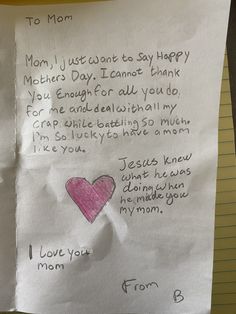 To Mom
Mom, I just want to Say Happy
Mothers Day. I cannot thank
You Enough for all you do.
For me and deal with all my
crap while battling so much.
I'm so lucky to have a mom
like you.
Jesus knew
what he was
doing when
he made you
my mom.
I love you
mom
From
B